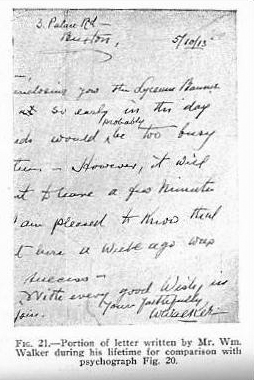 3. Palace Rd —
Buxton,
5/10/13
enclosing you the Lyceum Banner
so early in the day
probably
would be too busy
However, it will
t to leave a few minutes
am pleased to know that
t here a week ago was
success —
With every good wish,
Yours faithfully
W Walker
FIG. 21.—Portion of letter written by Mr. Wm.
Walker during his lifetime for comparison with
psychograph Fig. 20.